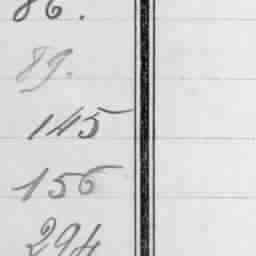 86.
89.
145
156
294